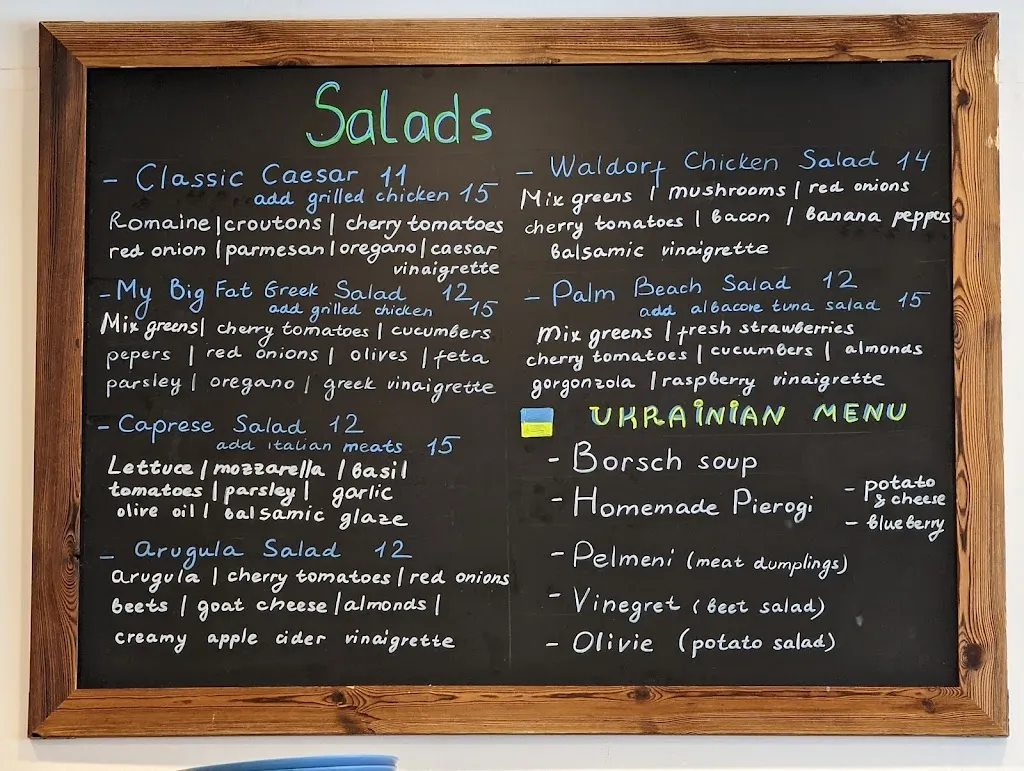 Salads
- Classic Caesar 11
add grilled chicken 15
Romaine | croutons | cherry tomatoes
red onion | parmesan | oregano | caesar
vinaigrette
- My Big Fat Greek Salad 12
add grilled chicken 15
Mix greens | cherry tomatoes | cucumbers
pepers | red onions | olives | feta
parsley | oregano | greek vinaigrette
- Caprese Salad 12
add italian meats 15
Lettuce | mozzarella | basil
tomatoes | parsley | garlic
olive oil | balsamic glaze
- Arugula Salad 12
arugula | cherry tomatoes | red onions
beets | goat cheese | almonds |
creamy apple cider vinaigrette
- Waldorf Chicken Salad 14
Mix greens | mushrooms | red onions
cherry tomatoes | bacon | banana peppers
balsamic vinaigrette
- Palm Beach Salad 12
add albacore tuna salad 15
Mix greens | fresh strawberries
cherry tomatoes | cucumbers | almonds
gorgonzola | raspberry vinaigrette
UKRAINIAN MENU
- Borsch soup
- Homemade Pierogi
- potato
& cheese
- blueberry
- Pelmeni (meat dumplings)
- Vinegret (beet salad)
- Olivie (potato salad)